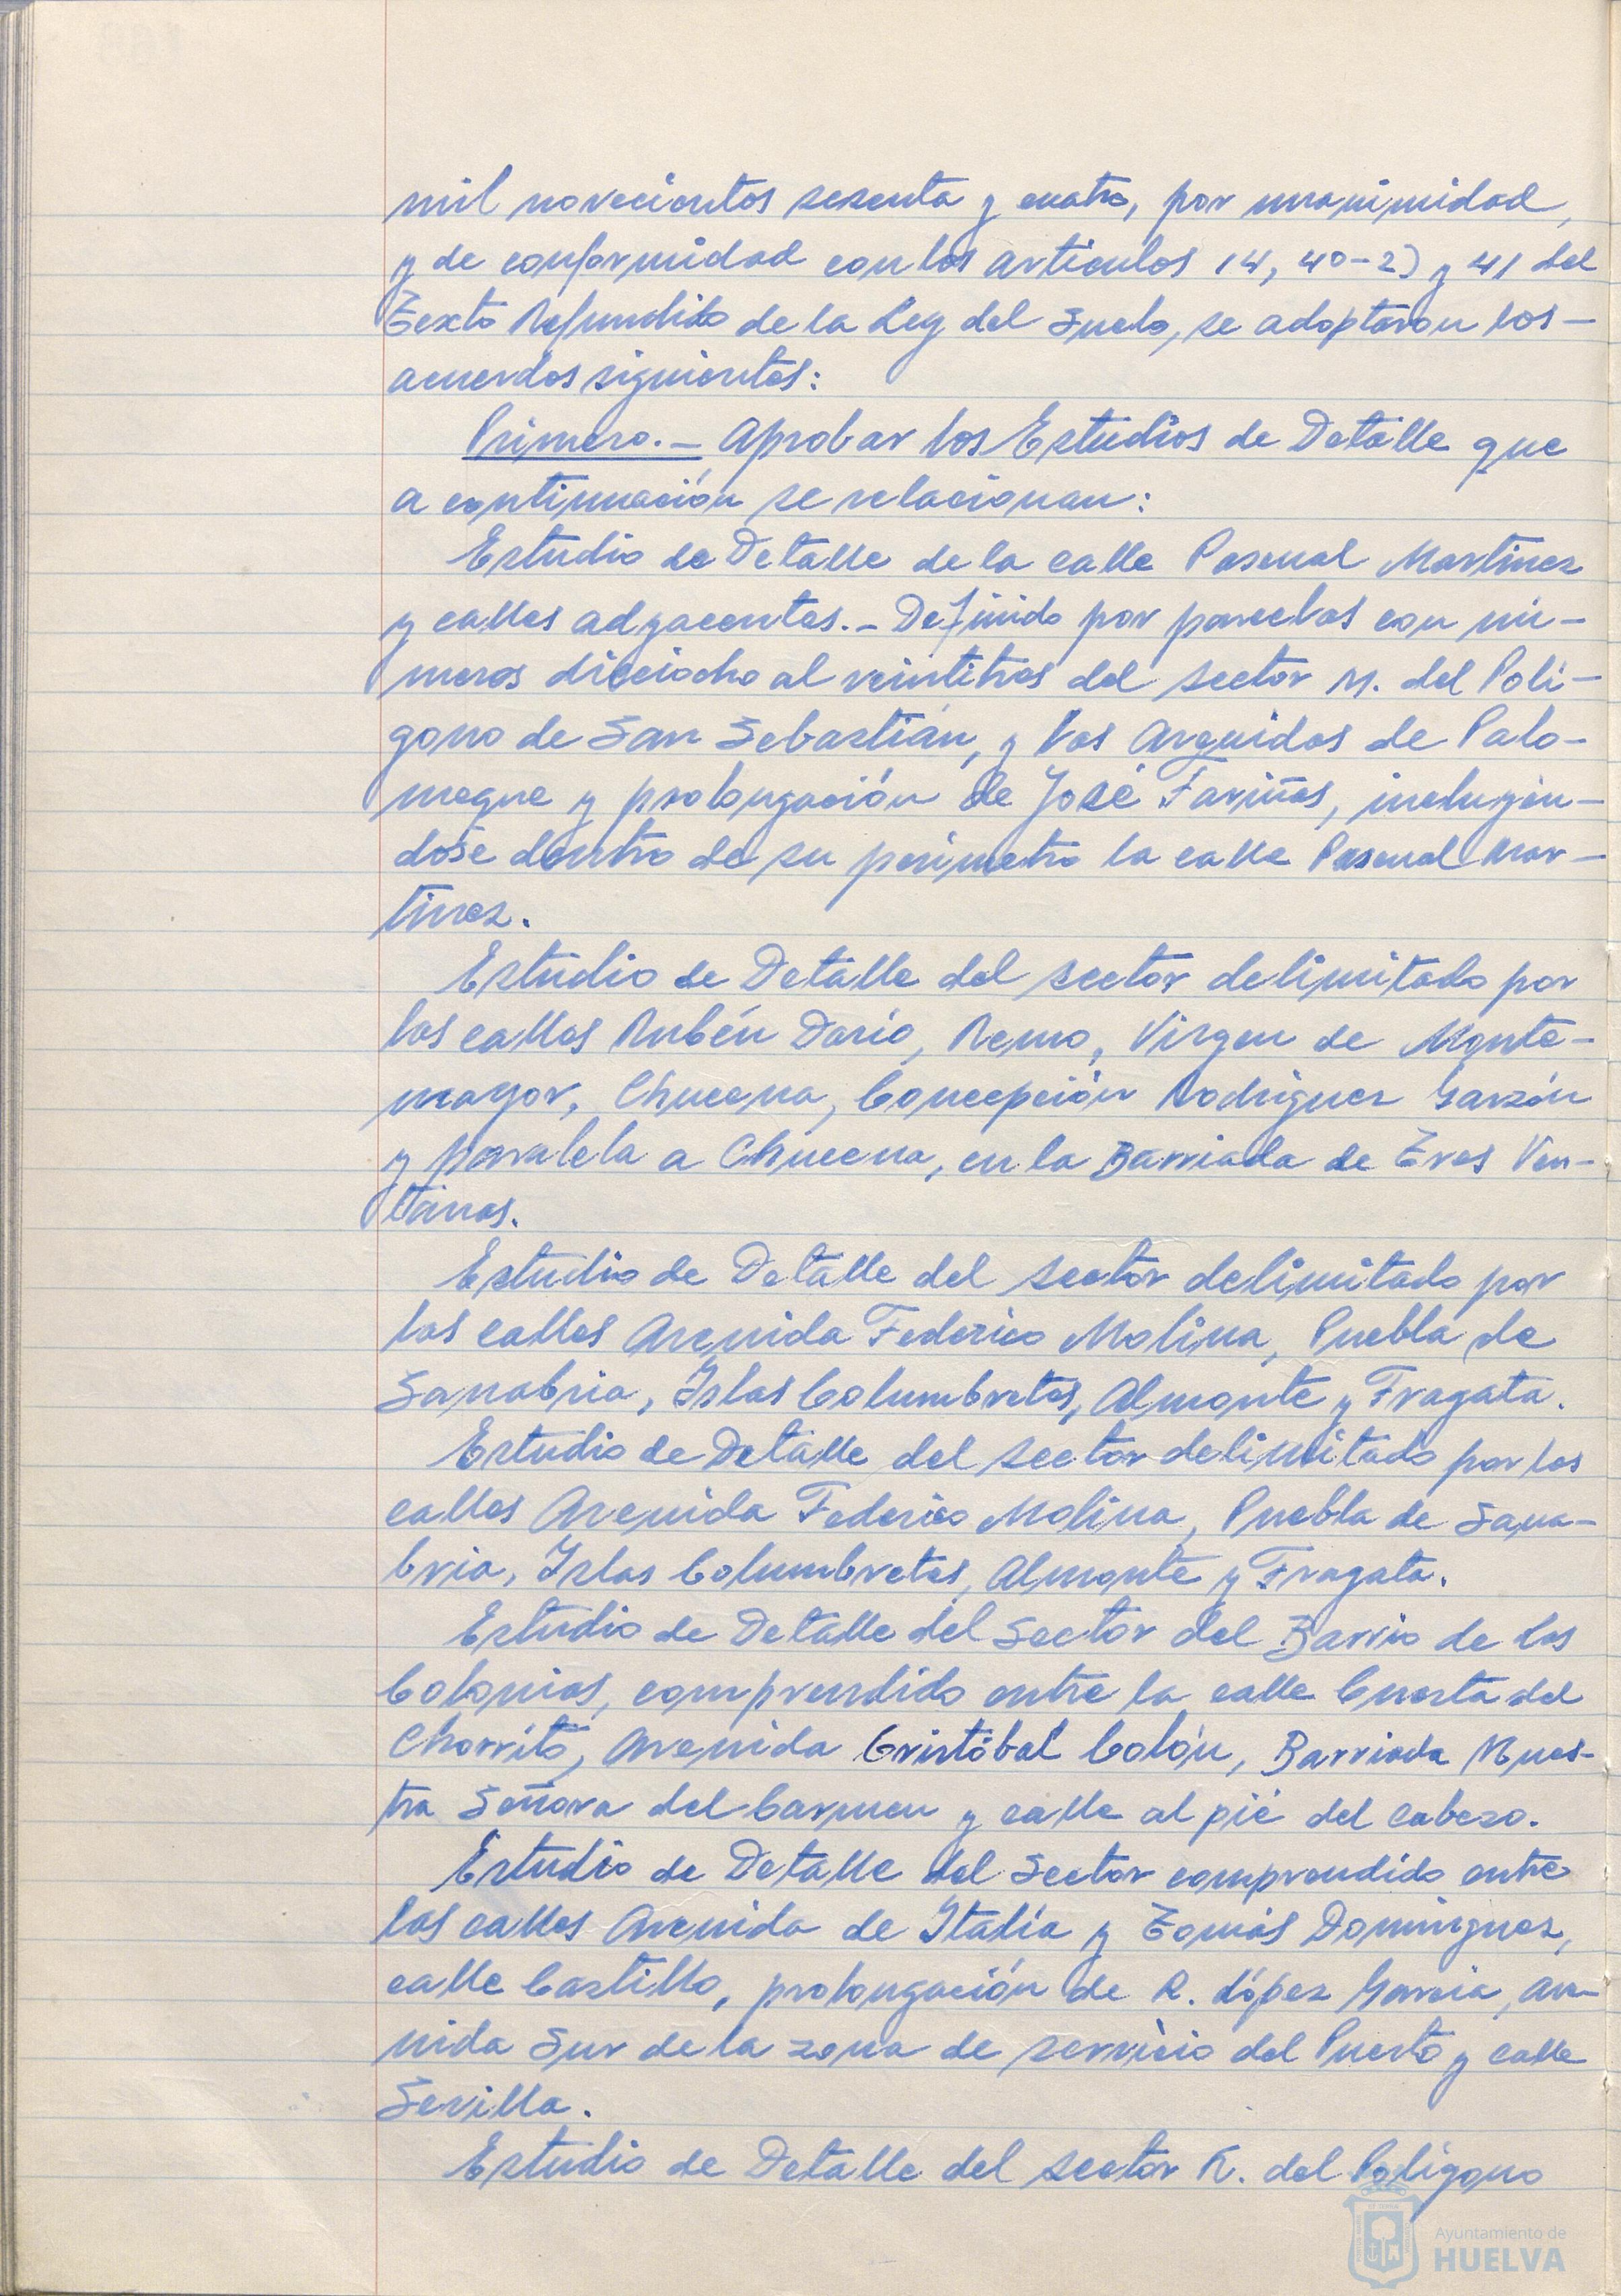 mil novecientos sesenta y cuatro, por unanimidad,
y de conformidad con los artículos 14, 40-2) y 41 del
Texto Refundido de la Ley del Suelo, se adoptaron los-
acuerdos siguientes:
Primero.- Aprobar los Estudios de Detalle que
a continuación se relacionan:
Estudio de Detalle de la calle Pascual Martínez
y calles adyacentes.- Definido por parcelas con nú-
meros dieciocho al veintitres del sector M. del Polí-
gono de San Sebastián, y las Avenidas de Palo-
meque y prolongación de José Fariñas, incluyén-
dose dentro de su perímetro la calle Pascual Mar-
tínez.
Estudio de Detalle del sector delimitado por
las calles Rubén Darío, Remo, Virgen de Monte-
mayor, Chucena, Concepción Rodríguez Garzón
y paralela a Chucena, en la Barriada de Tres Ven-
tanas.
Estudio de Detalle del sector delimitado por
las calles Avenida Federico Molina, Puebla de
Sanabria, Islas Columbretes, Almonte y Fragata.
Estudio de Detalle del sector delimitado por las
calles Avenida Federico Molina, Puebla de Sana-
bria, Islas Columbretes, Almonte y Fragata.
Estudio de Detalle del Sector del Barrio de las
Colonias, comprendido entre la calle Cuesta del
Chorrito, Avenida Cristóbal Colón, Barriada Nues-
tra Señora del Carmen y calle al pié del Cabezo.
Estudio de Detalle del Sector comprendido entre
las calles Avenida de Italia y Tomás Domínguez,
calle Castillo, prolongación de R. López García, Ave-
nida Sur de la zona de servicio del Puerto y calle
Sevilla.
Estudio de Detalle del sector R. del Polígono
Ayuntamiento de
HUELVA